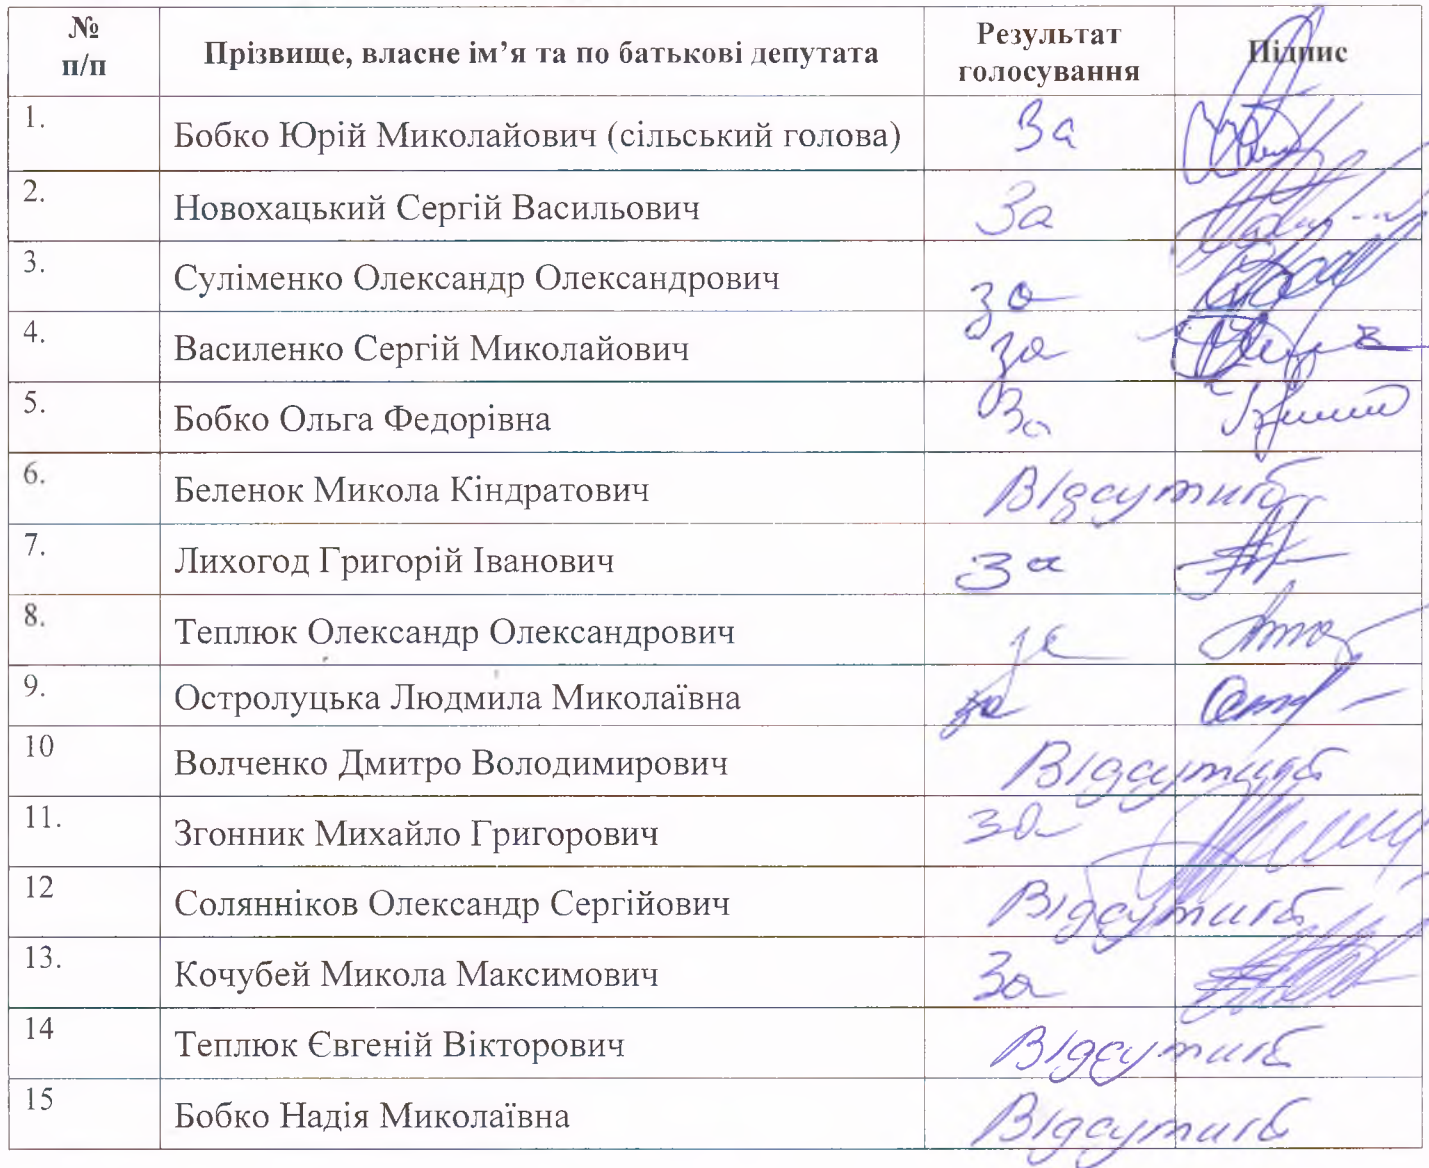 № п/п Прізвище, власне ім’я та по батькові депутата Результат голосування Підпис
1. Бобко Юрій Миколайович (сільський голова) За
2. Новохацький Сергій Васильович За
3. Суліменко Олександр Олександрович за
4. Василенко Сергій Миколайович за
5. Бобко Ольга Федорівна За
6. Беленок Микола Кіндратович Відсутній
7. Лихогод Григорій Іванович За
8. Теплюк Олександр Олександрович за
9. Остролуцька Людмила Миколаївна за
10 Волченко Дмитро Володимирович Відсутній
11. Згонник Михайло Григорович за
12 Солянніков Олександр Сергійович Відсутній
13. Кочубей Микола Максимович За
14 Теплюк Євгеній Вікторович Відсутній
15 Бобко Надія Миколаївна